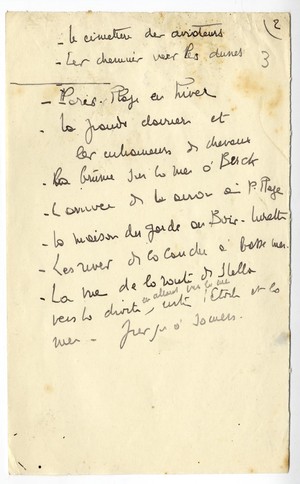 2
- le cimetière des aviateurs
- Les chemins vers les dunes 3
- Paris-Plage en hiver
- La grande
et
les
de chevaux
- La brume sur la mer à Berck
- L'arrivée de la
à P. Plage
- La maison des gardes au Bois-
- Les rives de la Canche à basse mer
- La vue de la route de Stella
en allant vers la mer
vers la droite, entre l'Etoile et la
mer - jusqu'à